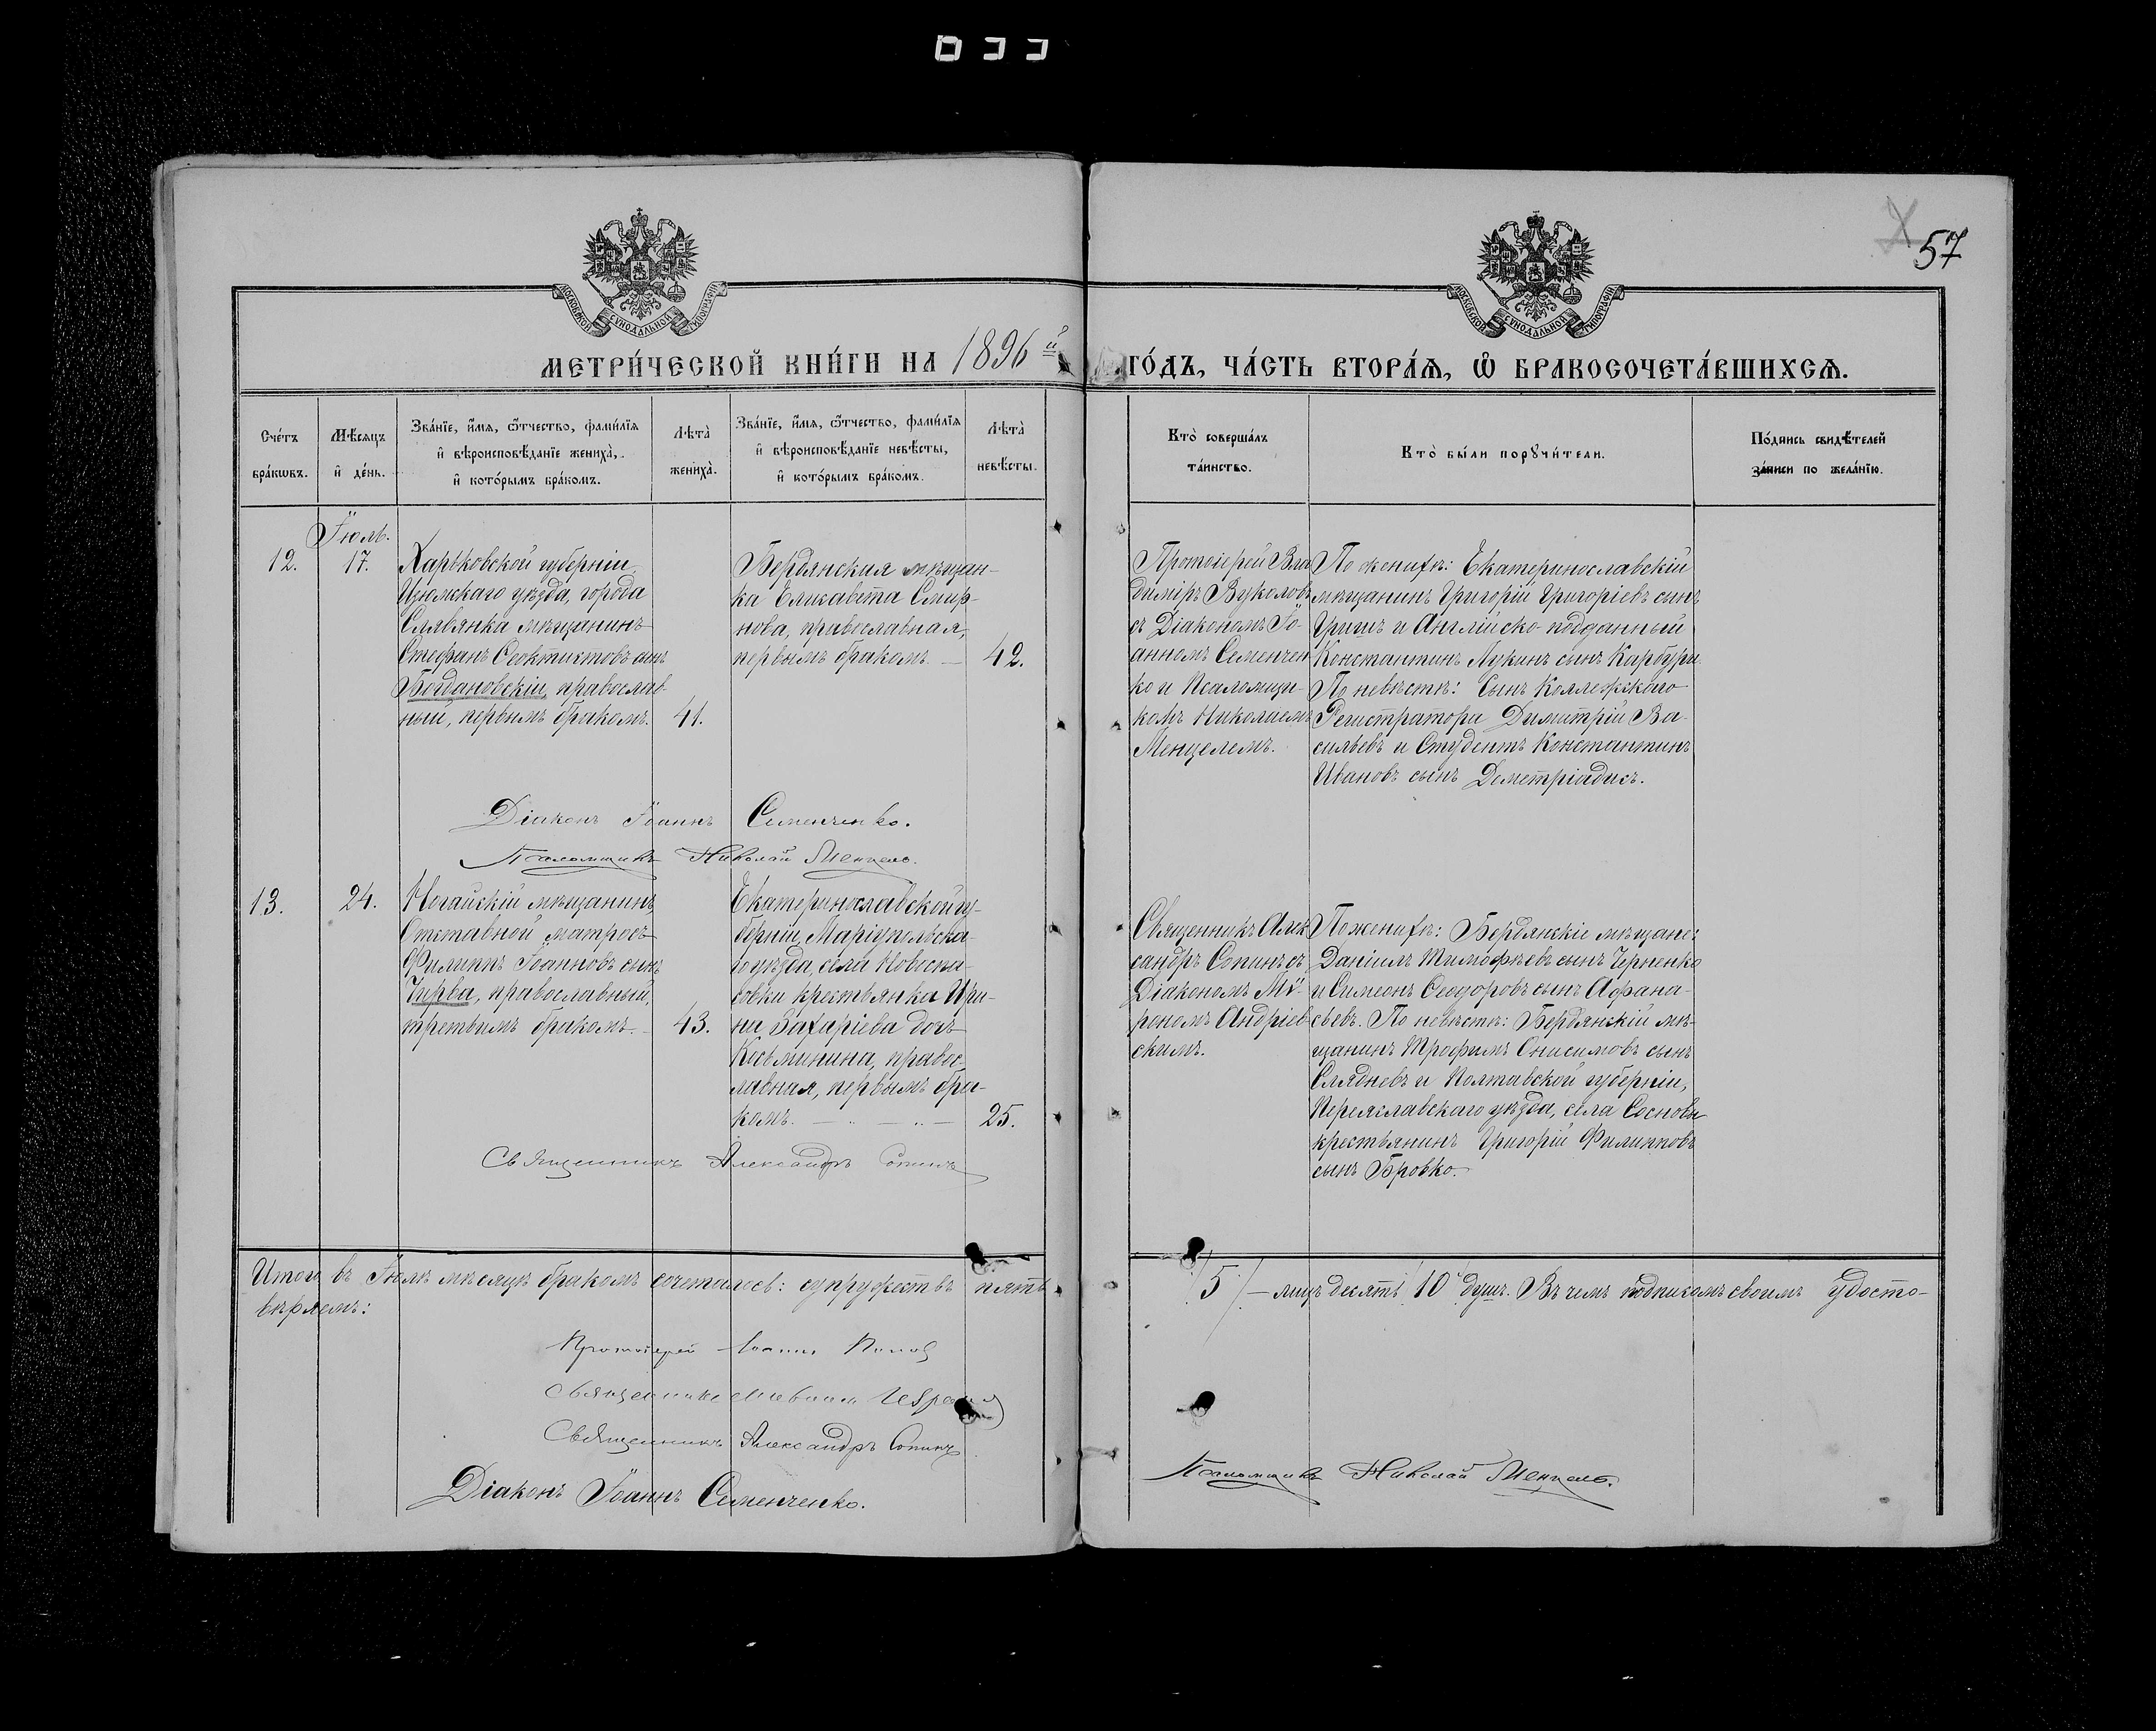 57
МОСКОВСКОЙ СѴНОДАЛЬНОЙ ТИПОГРАФІИ
МОСКОВСКОЙ СѴНОДАЛЬНОЙ ТИПОГРАФІИ
МЕТРИ́ЧЕСКОЙ КНИ́ГИ НА 1896й ГО́ДЪ, ЧА́СТЬ ВТОРА́Ѧ, Ѽ БРАКОСОЧЕТА́ВШИХСѦ.
Сче́тъ
бра́кѡвъ.
Мѣ́сѧцъ
и҆ де́нь.
Зва́нїе, и҆́мѧ, ѻ҆́тчество, фами́лїѧ
и҆ вѣроисповѣ́данїе жениха̀,
и҆ кото́рымъ бра́комъ.
Лѣта̀
жениха̀.
Зва́нїе, и҆́мѧ, ѻ҆́тчество, фами́лїѧ
и҆ вѣроисповѣ́данїе невѣ́сты,
и҆ кото́рымъ бра́комъ.
Лѣта̀
невѣ́сты.
Кто̀ соверша́лъ
та́инство.
Кто̀ бы́ли порꙋчи́тели.
По́дпись свидѣ́телей
за́писи по жела́нїю.
Іюль.
12.
17.
Харьковской губерніи,
Изюмскаго уѣзда, города
Славянка мѣщанинъ
Стефанъ Ѳеоктистовъ сынъ
Богдановскій, православ-
ный, первымъ бракомъ.
41.
Бердянская мѣщан-
ка Елисавета Смир-
нова, православная,
первымъ бракомъ. —
42.
Протоіерей Вла
диміръ Вуколовъ
съ Діакономъ Іо-
анномъ Семенчен
ко и Псаломщи-
комъ Николаемъ
Менцелемъ.
По женихѣ: Екатеринославскій
мѣщанинъ Григорій Григоріевъ сынъ
Гришъ и Англійско-подданный
Константинъ Лукинъ сынъ Карбури.
По невѣстѣ: Сынъ Коллежскаго
Регистратора Димитрій Ва-
сильевъ и Студентъ Константинъ
Ивановъ сынъ Деметріадисъ.
Діаконъ Іоаннъ Семенченко.
Псаломщикъ Николай Менцель.
13.
24.
Ногайскій мѣщанинъ,
Отставной матросъ
Филиппъ Іоанновъ сынъ
Чирва, православный,
третьимъ бракомъ. —
43.
Екатеринославской гу-
берніи, Маріупольска-
го уѣзда, села Новоспа-
совки крестьянка Ири-
на Захаріева дочь
Косьминина, правос-
лавная, первымъ бра-
комъ.
25.
Священникъ Алек
сандръ Сопинъ съ
Діакономъ Мѵ-
рономъ Андріев-
скимъ.
По женихѣ: Бердянскіе мѣщане:
Даніилъ Тимоѳѣевъ сынъ Черненко
и Симеонъ Ѳеодоровъ сынъ Афана-
сьевъ. По невѣстѣ: Бердянскій мѣ-
щанинъ Трофимъ Онисимовъ сынъ
Слядневъ и Полтавской губерніи,
Переяславскаго уѣзда, села Сосновы
крестьянинъ Григорій Филипповъ
сынъ Бровко.
Священникъ Александръ Сопинъ
Итого въ Іюлѣ мѣсяцѣ бракомъ сочеталось: супружествъ пять /5/ — лицъ десять 10 душъ. Въ чемъ подписомъ своимъ удосто-
вѣряемъ:
Протоіерей Іоаннъ Поповъ
Священникъ
Священникъ Александръ Сопинъ
Діаконъ Іоаннъ Семенченко.
Псаломщикъ Николай Менцель.